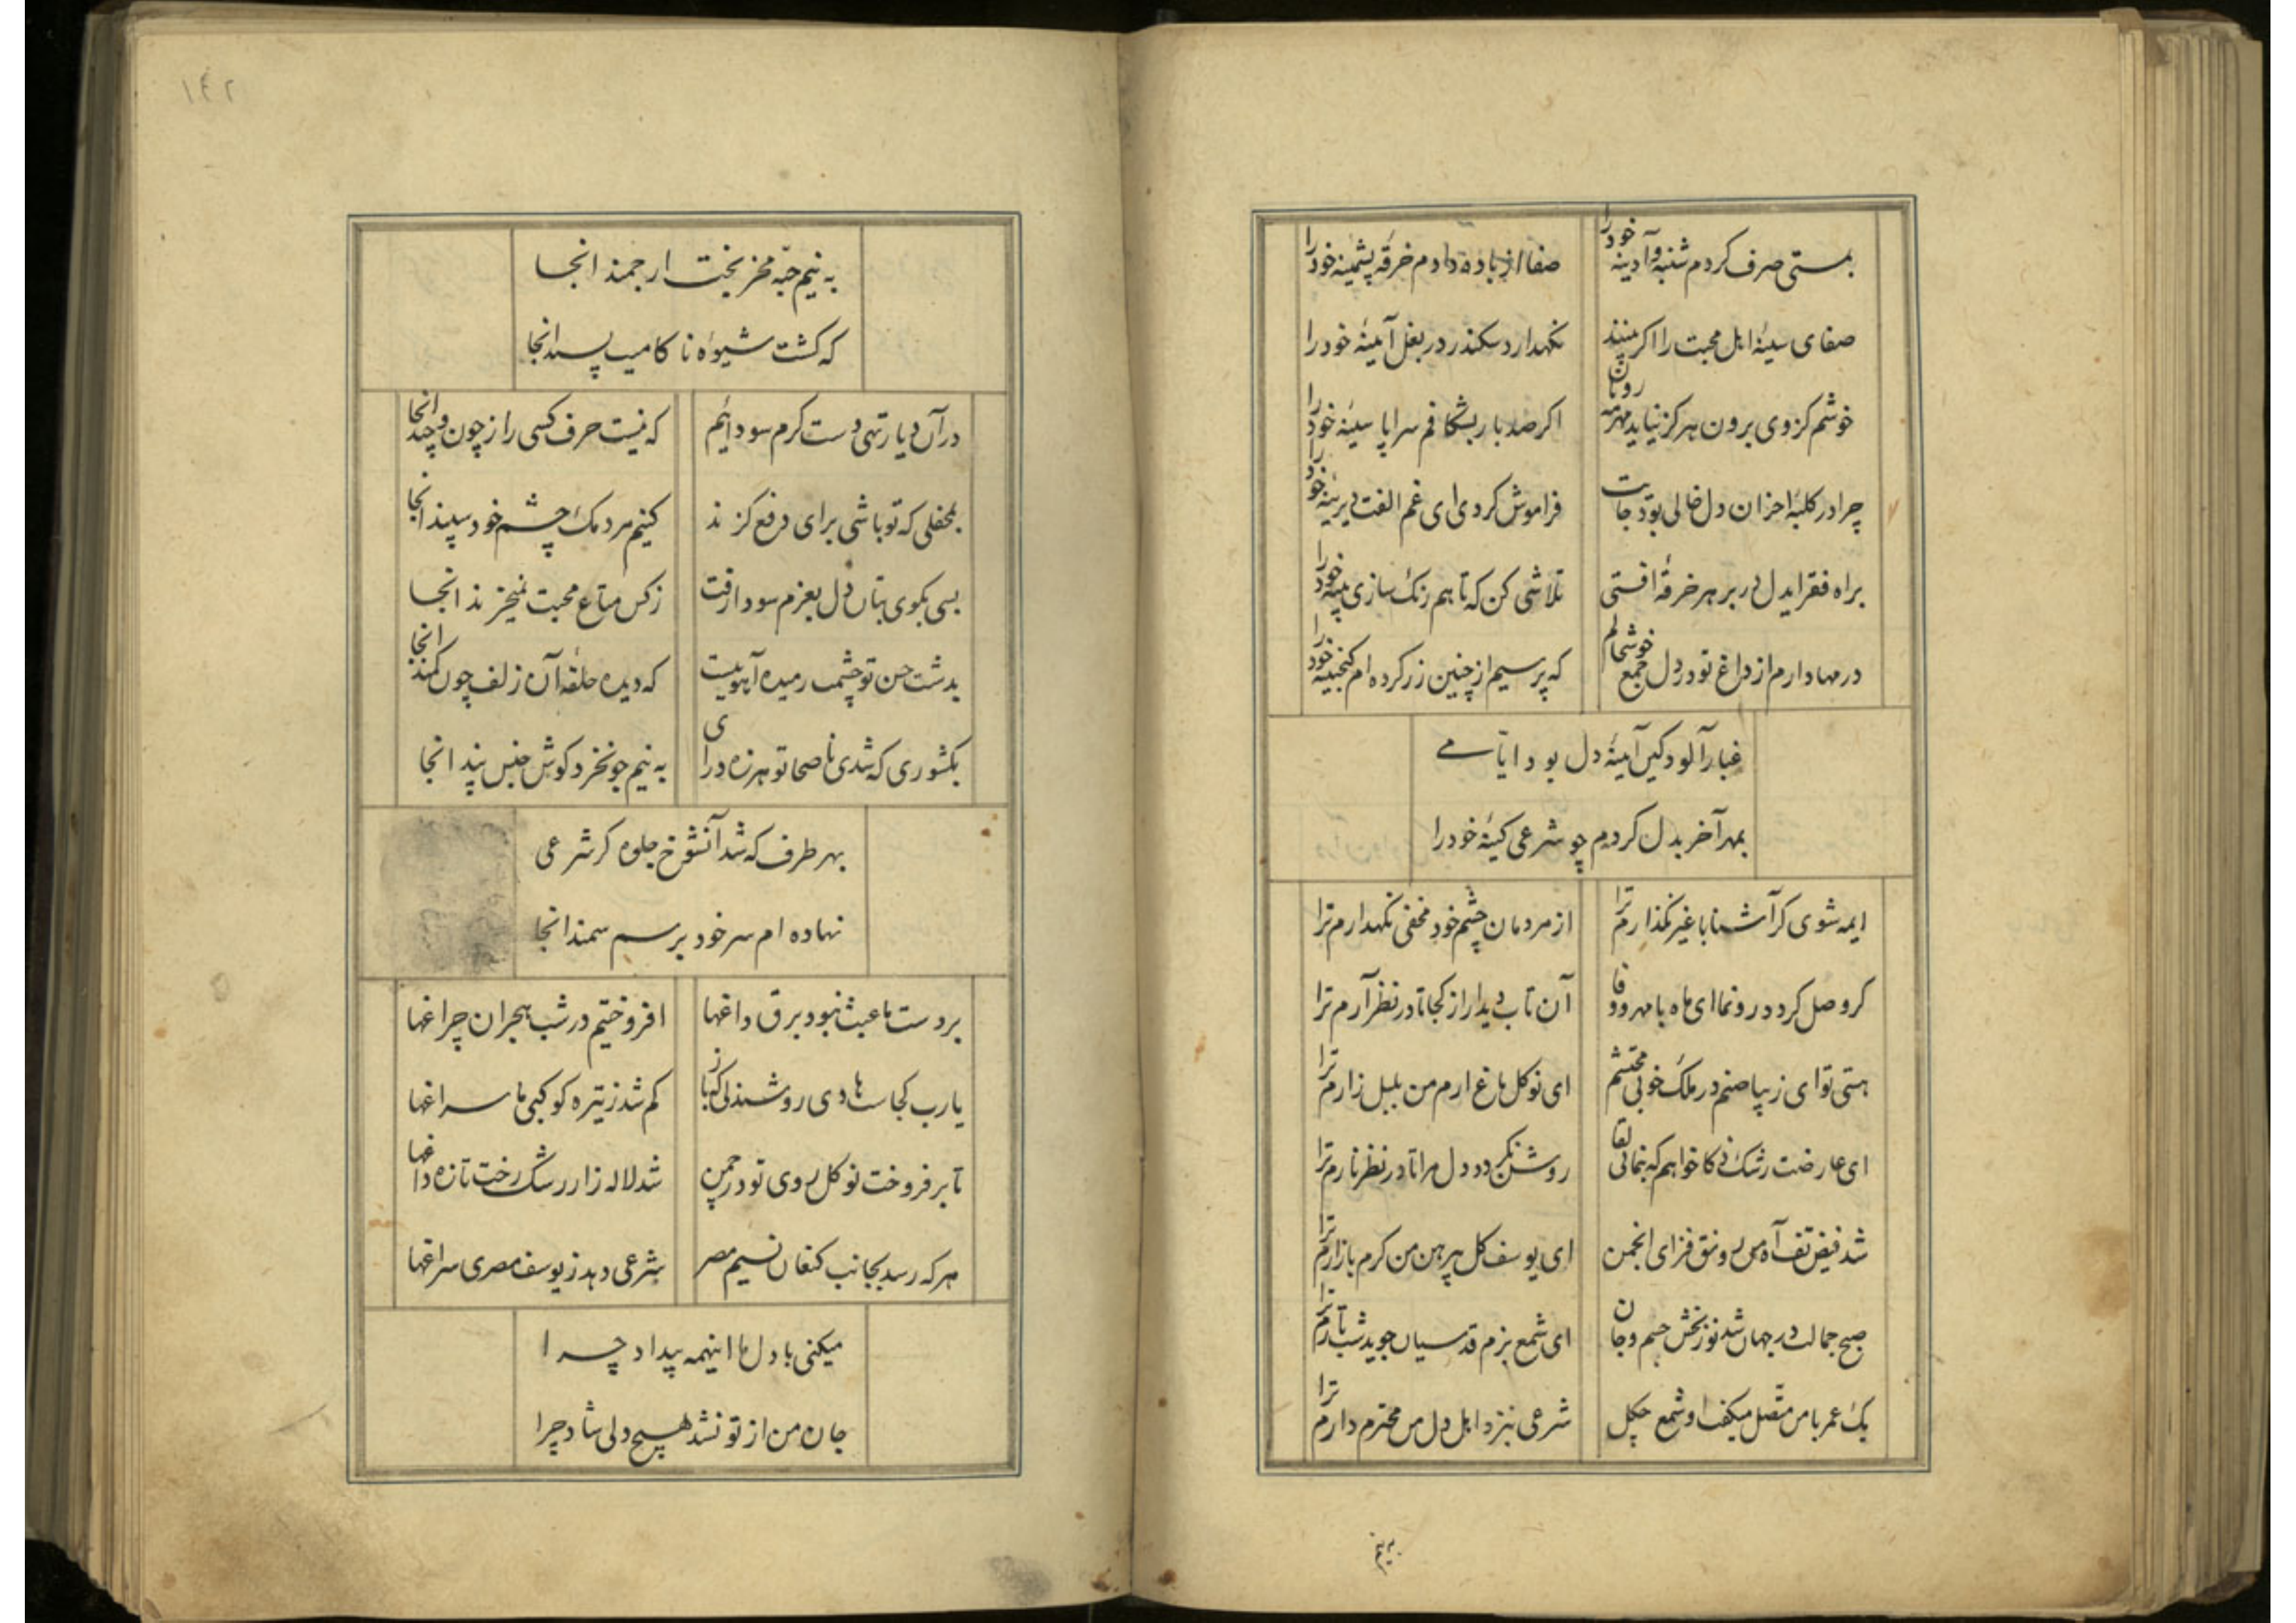 بمستی صرف کردم شنبه و آدینه خود را
صفا از باده دادم خرقه پشمینه خود را
صفای سینهٔ اهل محبت را اکر بیند
نکهدارد سکندر در بغل آیینهٔ خود را
خوشم کز وی برون هرکز نیاید مهر مه رویان
اکر صد بار بشکافم سراپا سینهٔ خود را
چرا در کلبهٔ احزان دل خالی بود جایت
فراموش کردی ای غم الفت دیرینهٔ خود را
براه فقر ایدل در بر هر خرقهٔ افتی
تلاشی کن که تا هم رنک سازی پینهٔ خود را
درمها دارم از داغ تو در دل جمع خوشحالم
که پر سیم از چنین زر کرده ام کنجینهٔ خود را
غبار آلود کین آیینهٔ دل بود ایامی
بمهر آخر بدل کردم چو شرعی کینهٔ خود را
ایمه شوی کر آشنا با غیر نکذارم ترا
از مردمان چشم خود مخفی نکهدارم ترا
کر وصل کردد رونما ای ماه با مهر و وفا
آن تاب دیدار از کجا تا در نظر آرم ترا
هستی تو ای زیبا صنم در ملک خوبی محتشم
ای نوکل باغ ارم من بلبل زارم ترا
ای عارضت رشک ذکا خواهم که بنمائی لقا
روشن نکردد دل مرا تا در نظر نارم ترا
شد فیض تف آه من رونق فزای انجمن
ای یوسف کل پیرهن من کرم بازارم ترا
صبح جمالت در جهان شد نوربخش جسم و جان
ای شمع بزم قدسیان جوید شب تارم ترا
یک عمر با من متصل میکفت او شمع چکل
شرعی بنزد اهل دل من محترم دارم ترا
به نیم
۱۴۲
به نیم حبّه مخر بخت ارجمند انجا
که کشت شیوهٔ ناکامی پسند انجا
در آن دیار تهی دست کرم سودائیم
که نیست حرف کسی را ز چون و چند انجا
بمحفلی که تو باشی برای دفع کزند
کنیم مردمک چشم خود سپند انجا
بسی بکوی بتان دل بعزم سودا رفت
ز کس متاع محبت نمیخرند انجا
بدشت حسن تو چشمت رمیده آهوییست
که دیده حلقهٔ آن زلف چون کمند انجا
بکشوری که شدی ناصحا تو هرزه درای
به نیم جو نخرد کوش جنس پند انجا
بهر طرف که شد آنشوخ جلوه کر شرعی
نهاده ام سر خود بر سم سمند انجا
بر دست ما عبث نبود برق داغها
افروختیم در شب هجران چراغها
یا رب کجاست هادی روشندلی که باز
کم شد ز تیره کوکبی ما سراغها
تا برفروخت نوکل روی تو در چمن
شد لاله زار رشک رخت تازه داغها
هر که رسد بجانب کنعان نسیم مصر
شرعی دهد ز یوسف مصری سراغها
میکنی با دل ما اینهمه بیداد چرا
جان من از تو نشد هیچ دلی شاد چرا